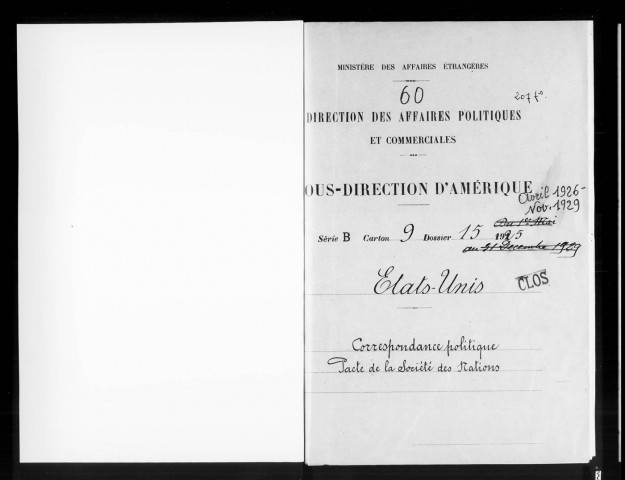 MINISTÈRE DES AFFAIRES ÉTRANGÈRES
60
207 fo
DIRECTION DES AFFAIRES POLITIQUES
ET COMMERCIALES
OUS-DIRECTION D'AMÉRIQUE
Avril 1926-
Nov. 1929
Du 1er Mai
Série B Carton 9 Dossier 15 1925
au 31 Décembre 1929
Etats-Unis
CLOS
Correspondance politique
Pacte de la Société des Nations